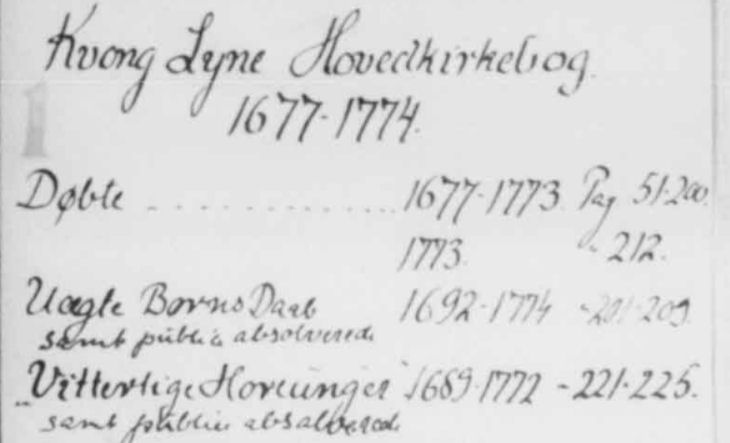 Kvong Lyne Hovedkirkebog.
1677-1774.
Døbte .............. 1677-1773. Pag. 51-200.
1773. - 212.
Uægte Børns Daab 1692-1774 - 201-209.
samt public absolverede
"Vitterlige Horeunger" 1689-1772 - 221-225.
samt public absolverede